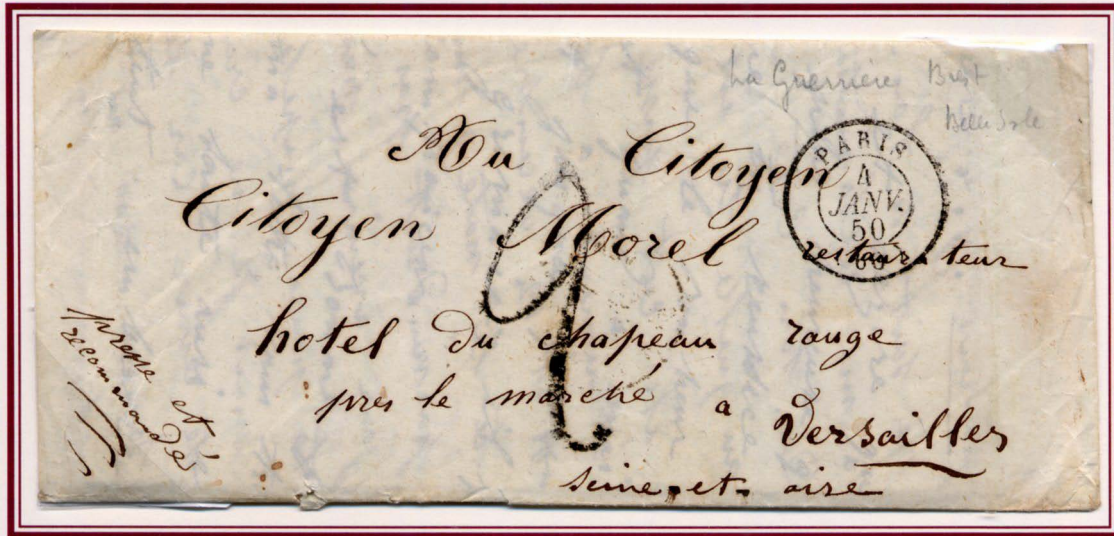 La Guerrière Brest
Belle Isle
PARIS
4
JANV.
50
60
Au Citoyen
Citoyen Morel restaurateur
hotel du chapeau rouge
pres le marché a Versailles
seine-et-oise
presse et
recommandé
2